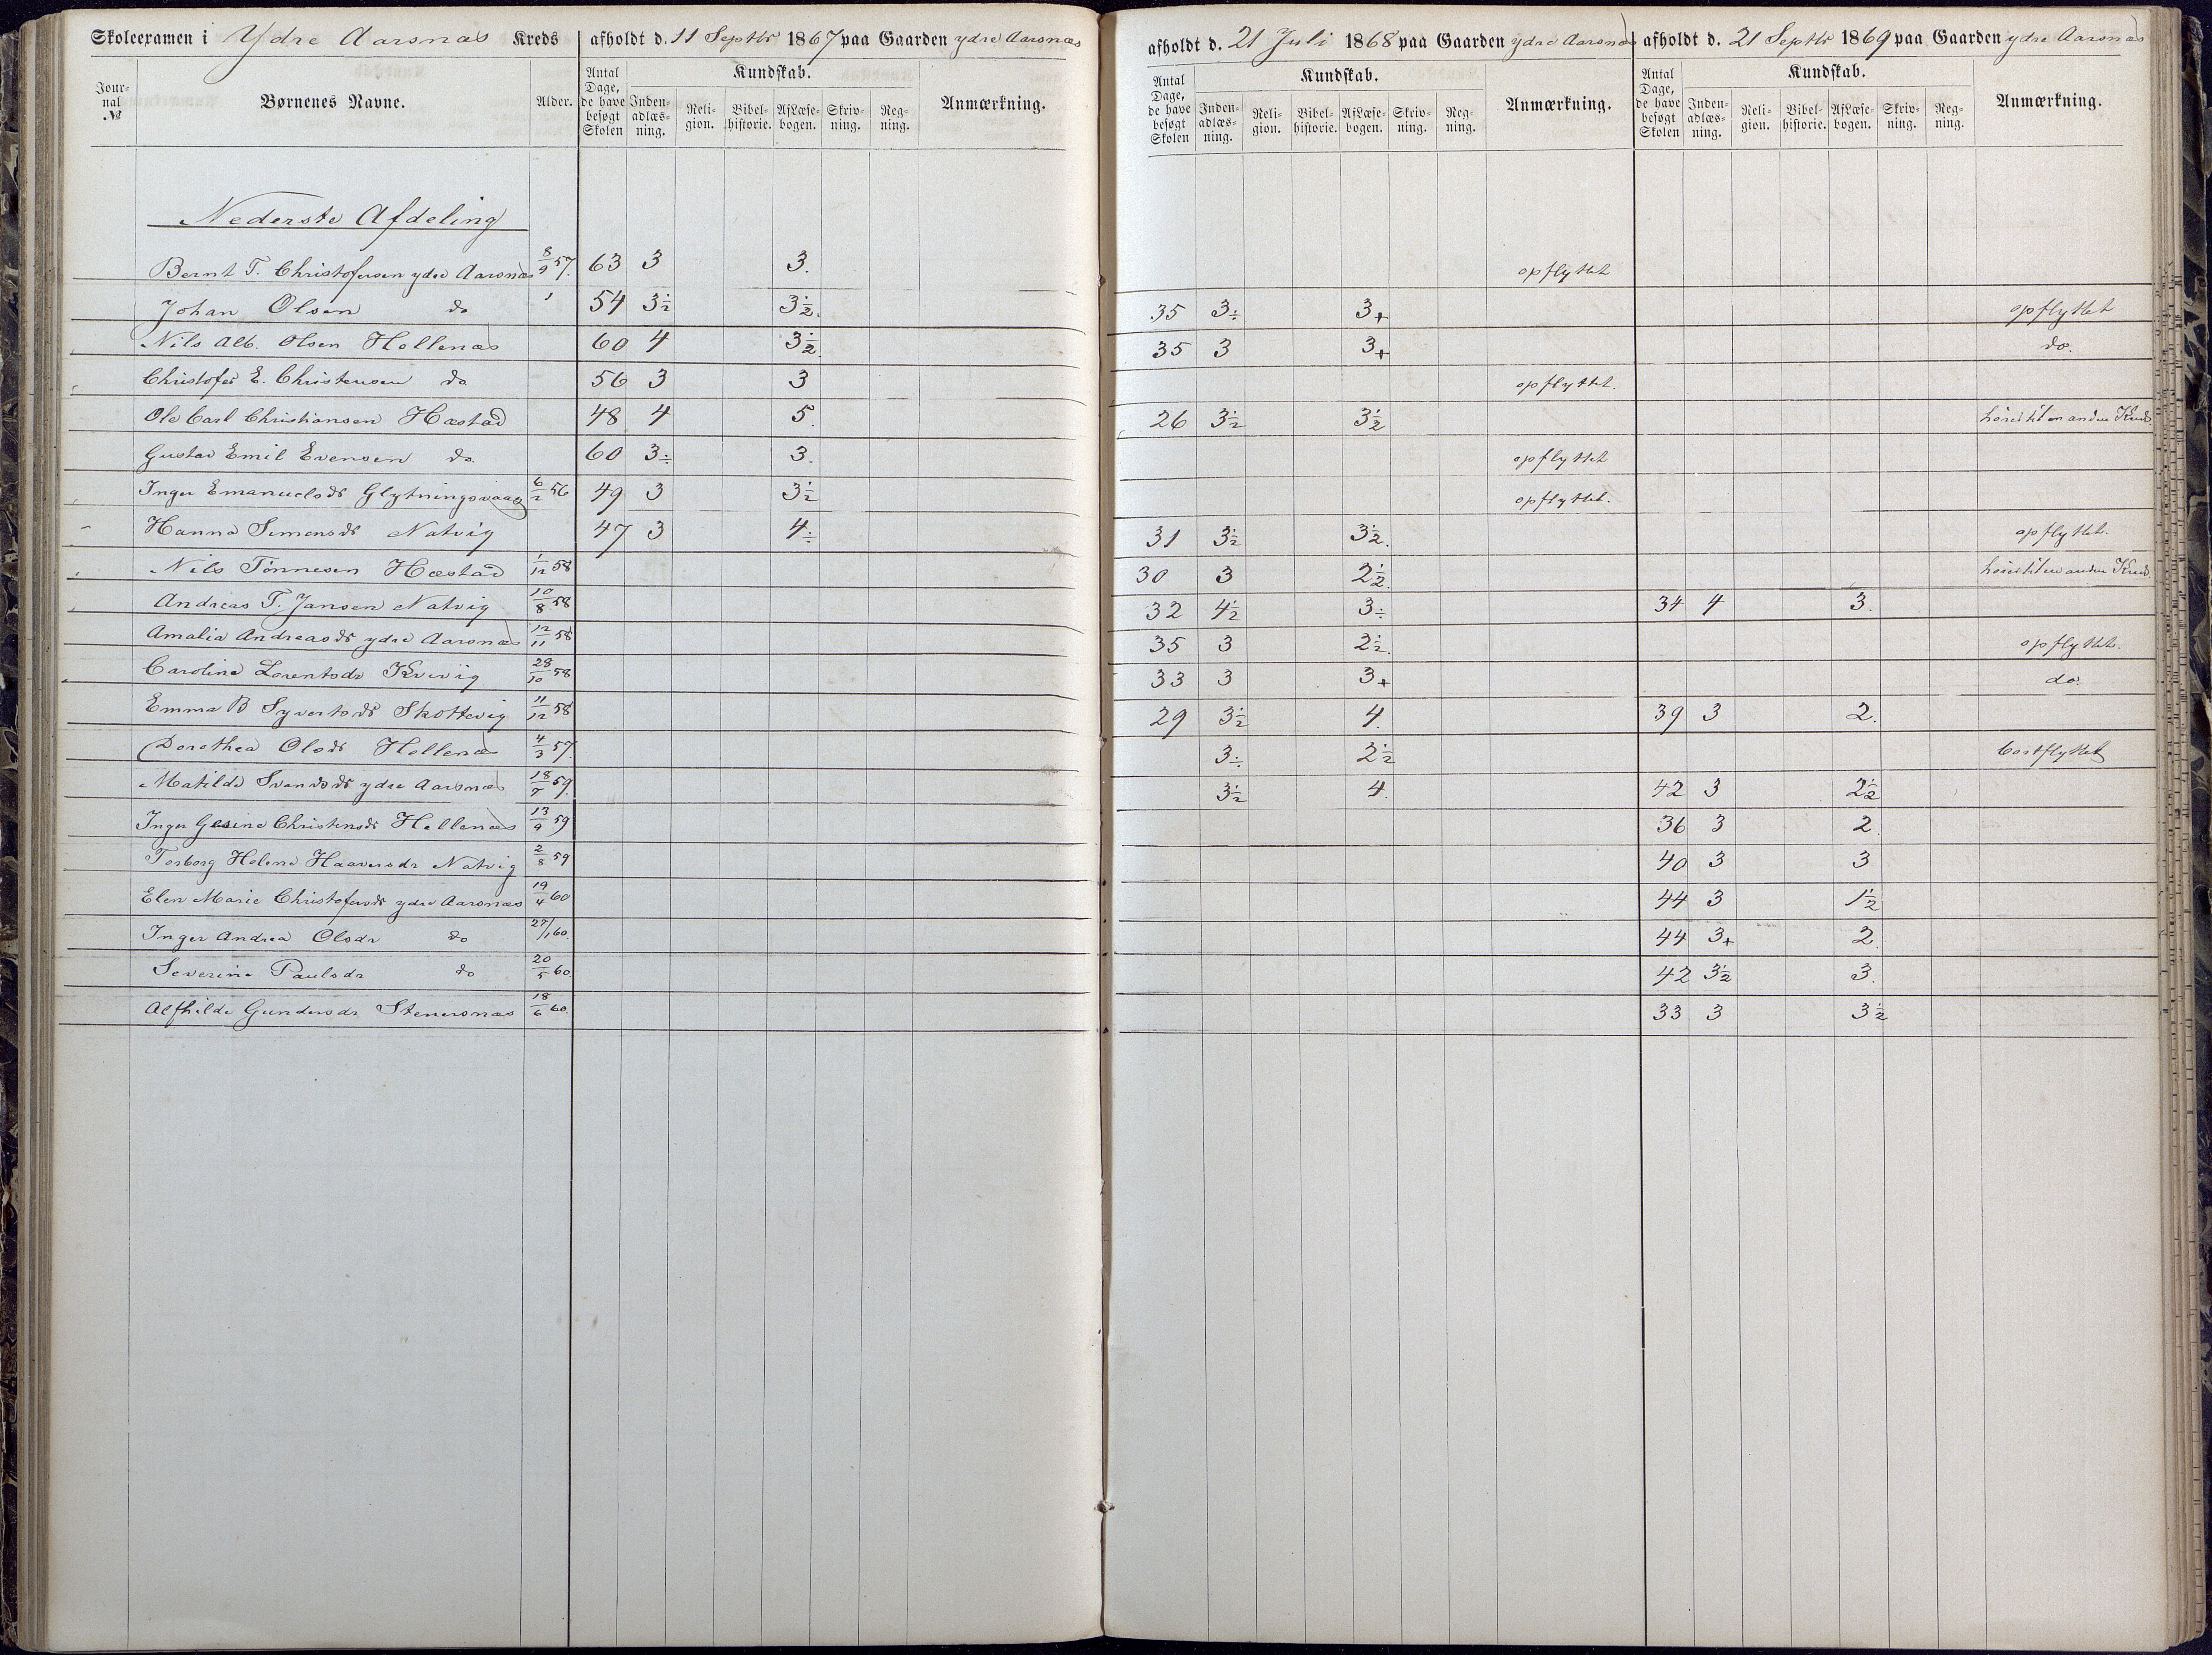 Skoleexamen i Ydre Aarsnæs Kreds afholdt d. 11 Septbr 1867 paa Gaarden ydre Aarsnæs afholdt d. 21 Juli 1868 paa Gaarden ydre Aarsnæs afholdt d. 21 Septbr 1869 paa Gaarden ydre Aarsnæs
Jour-nal № Børnenes Navne. Alder. Antal Dage, de have besøgt Skolen Kundskab. Inden-adlæs-ning. Reli-gion. Bibel-historie. AfLæse-bogen. Skriv-ning. Reg-ning. Anmærkning. Antal Dage, de have besøgt Skolen Kundskab. Inden-adlæs-ning. Reli-gion. Bibel-historie. AfLæse-bogen. Skriv-ning. Reg-ning. Anmærkning. Antal Dage, de have besøgt Skolen Kundskab. Inden-adlæs-ning. Reli-gion. Bibel-historie. AfLæse-bogen. Skriv-ning. Reg-ning. Anmærkning.
Nederste Afdeling
Bernt T. Christofersen ydre Aarsnæs 8/9 57. 63 3 3. opflyttet
Johan Olsen do 54 3½ 3½. 35 3÷ 3+ opflyttet
Nils Alb. Olsen Hellenæs 60 4 3½ 35 3 3+ do.
Christofer E. Christensen do 56 3 3 opflyttet.
Ole Carl Christiansen Hæstad 48 4 5. 26 3½ 3½ til en anden Kreds
Gustav Emil Evensen do. 60 3÷ 3. opflyttet
Inger Emanuelsdr Glytningsvaag 6/2 56 49 3 3½ opflyttet.
Hanna Simonsdr Natvig 47 3 4÷ 31 3½ 3½. opflyttet.
Nils Tønnesen Hæstad 1/12 58 30 3 2½. til en anden Kreds
Andreas T. Jansen Natvig 10/8 58 32 4½ 3÷ 34 4 3.
Amalia Andreasdr ydre Aarsnæs 12/11 58 35 3 2½. opflyttet.
Caroline Lorentsdr Kvivig 28/10 58 33 3 3+ do.
Emma B Syvertsdr Skottevig 11/12 58 29 3½ 4. 39 3 2.
Dorothea Olsdr Hellenæs 4/3 57. 3÷ 2½ bortflyttet
Matilde Svendsdr ydre Aarsnæs 18/7 59. 3½ 4. 42 3 2½
Inger Gesine Christensdr Hellenæs 13/9 59 36 3 2.
Torborg Helene Haaversdr Natvig 2/8 59 40 3 3
Elen Marie Christofersdr ydre Aarsnæs 19/4 60 44 3 1½
Inger Andrea Olsdr do 27/1 60. 44 3+ 2.
Severine Paulsdr do 20/5 60. 42 3½ 3.
Alfhilde Gundersdr Stenersnæs 18/6 60. 33 3 3½